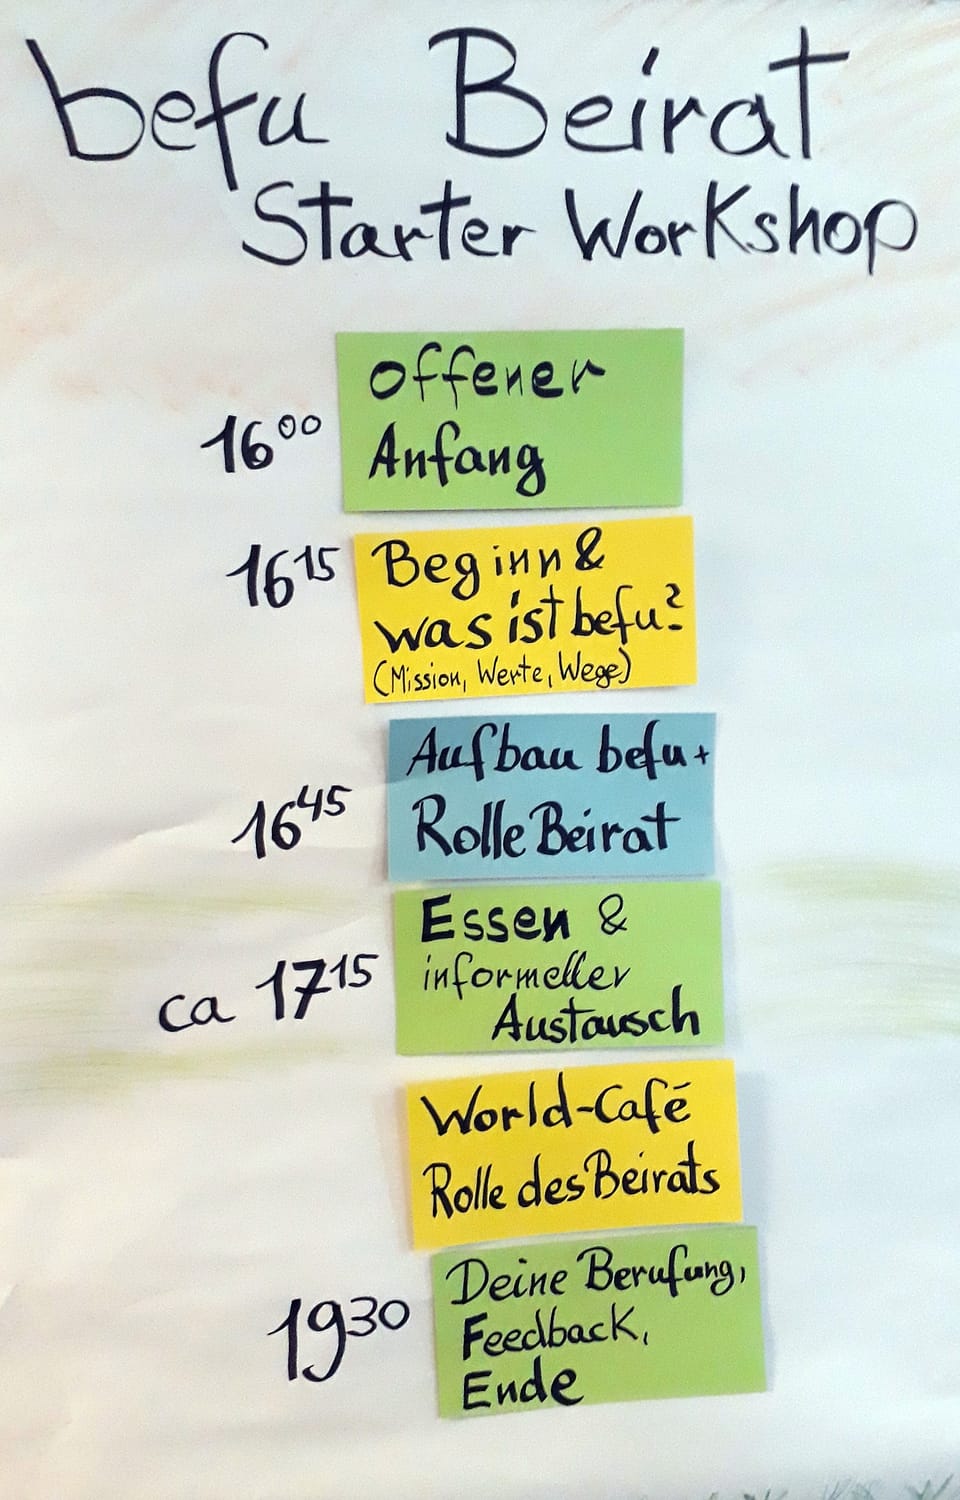 befu Beirat
Starter Workshop
offener
16⁰⁰ Anfang
16¹⁵ Beginn &
was ist befu?
(Mission, Werte, Wege)
Aufbau befu +
16⁴⁵ Rolle Beirat
Essen &
ca 17¹⁵ informeller
Austausch
World-Café
Rolle des Beirats
Deine Berufung,
19³⁰ Feedback,
Ende